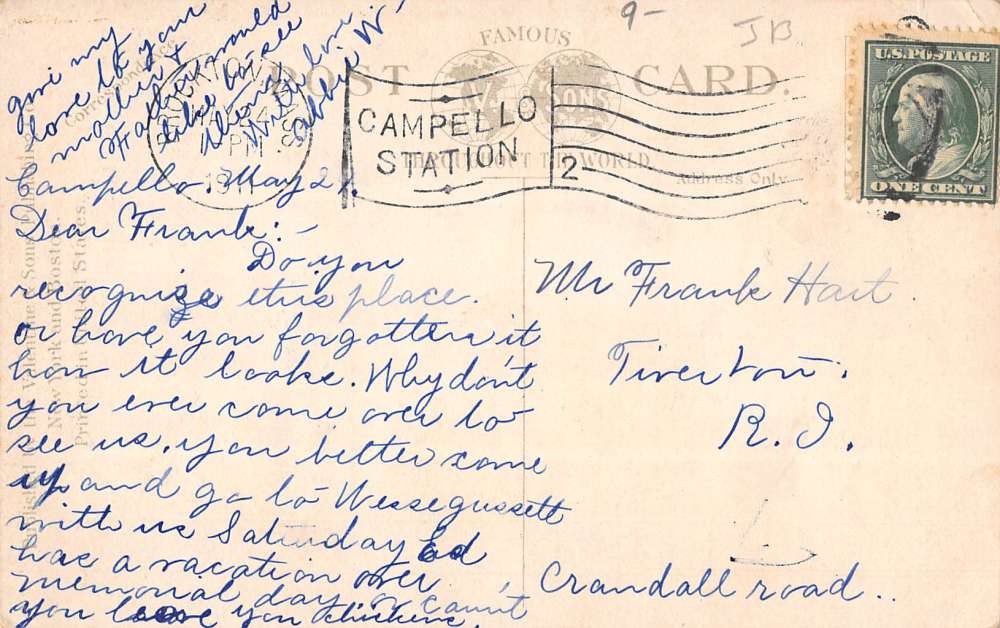 give my
love to your
mother &
Father would
like to see
them
With love
Abbie W.
9-
JB
FAMOUS
POST CARD.
THROUGHOUT THE WORLD
Correspondence
Address Only
BROCKTON
MASS.
PM
CAMPELLO
STATION
2
U.S. POSTAGE
ONE CENT
Campello. May 24.
Dear Frank:-
Do you
recognize this place.
or have you forgotten it
how it looks. Why don't
you ever come over to
see us. you better come
up and go to Wessegussett
with us Saturday Ed
has a vacation over
memorial day, or can't
you leave you chickens.
Mr Frank Hart.
Tiverton.
R.I.
Crandall road..
Valentine & Sons
New York and Boston.
Printed in United States.